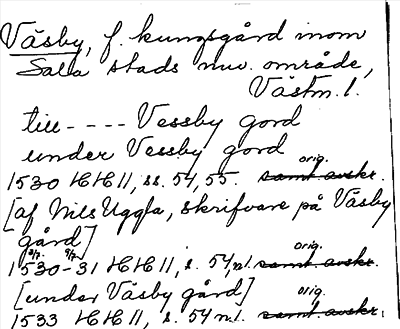 Väsby, f. kungsgård inom
Sala stads nuv. område,
Västm. l.
till - - - - Vessby gord
under Vessby gord
orig.
1530 HH 11, ss. 54, 55. samt. avskr.
[af Nils Uggla, skrifvare på Väsby
gård]
orig.
1530-31 HH 11, s. 54, n.l. samt. avskr.
[under Väsby gård]
orig.
1533 HH 11, s. 54 n.l. samt. avskr.